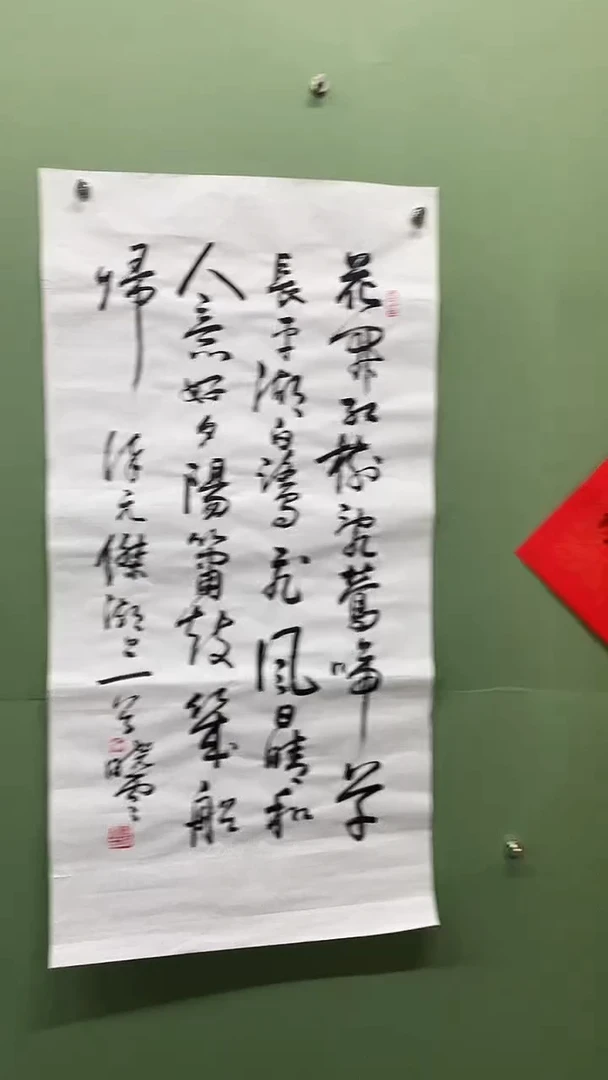 花開紅樹亂鶯啼草
長平湖白鷺飛風日晴和
人意好夕陽簫鼓幾船
帰 徐元傑湖上一首曉雲